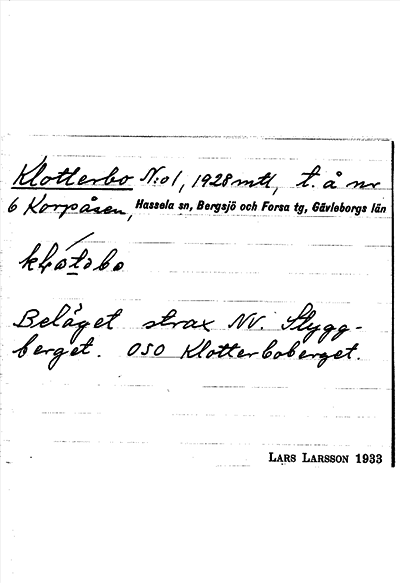 Klotterbo N:o 1, 1928 mtl, t. å nr
6 Korpåsen, Hassela sn, Bergsjö och Forsa tg, Gävleborgs län
Beläget strax NV. Stygg-
berget. OSO Klotterboberget.
LARS LARSSON 1933